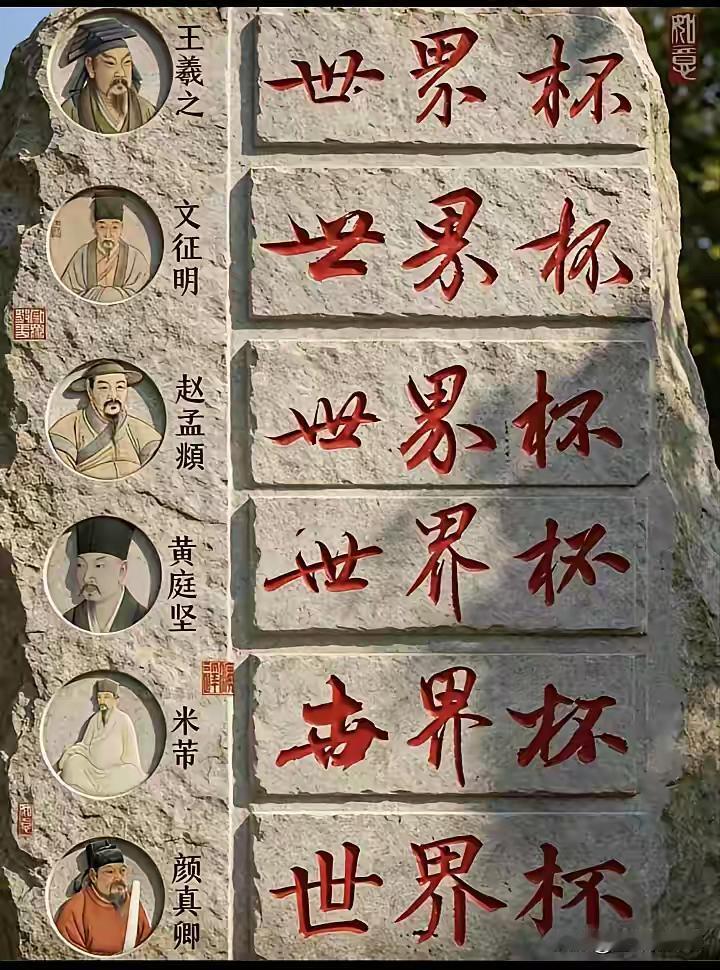 如意
王羲之
世界杯
文征明
世界杯
赵孟頫
世界杯
黄庭坚
世界杯
米芾
世界杯
颜真卿
世界杯